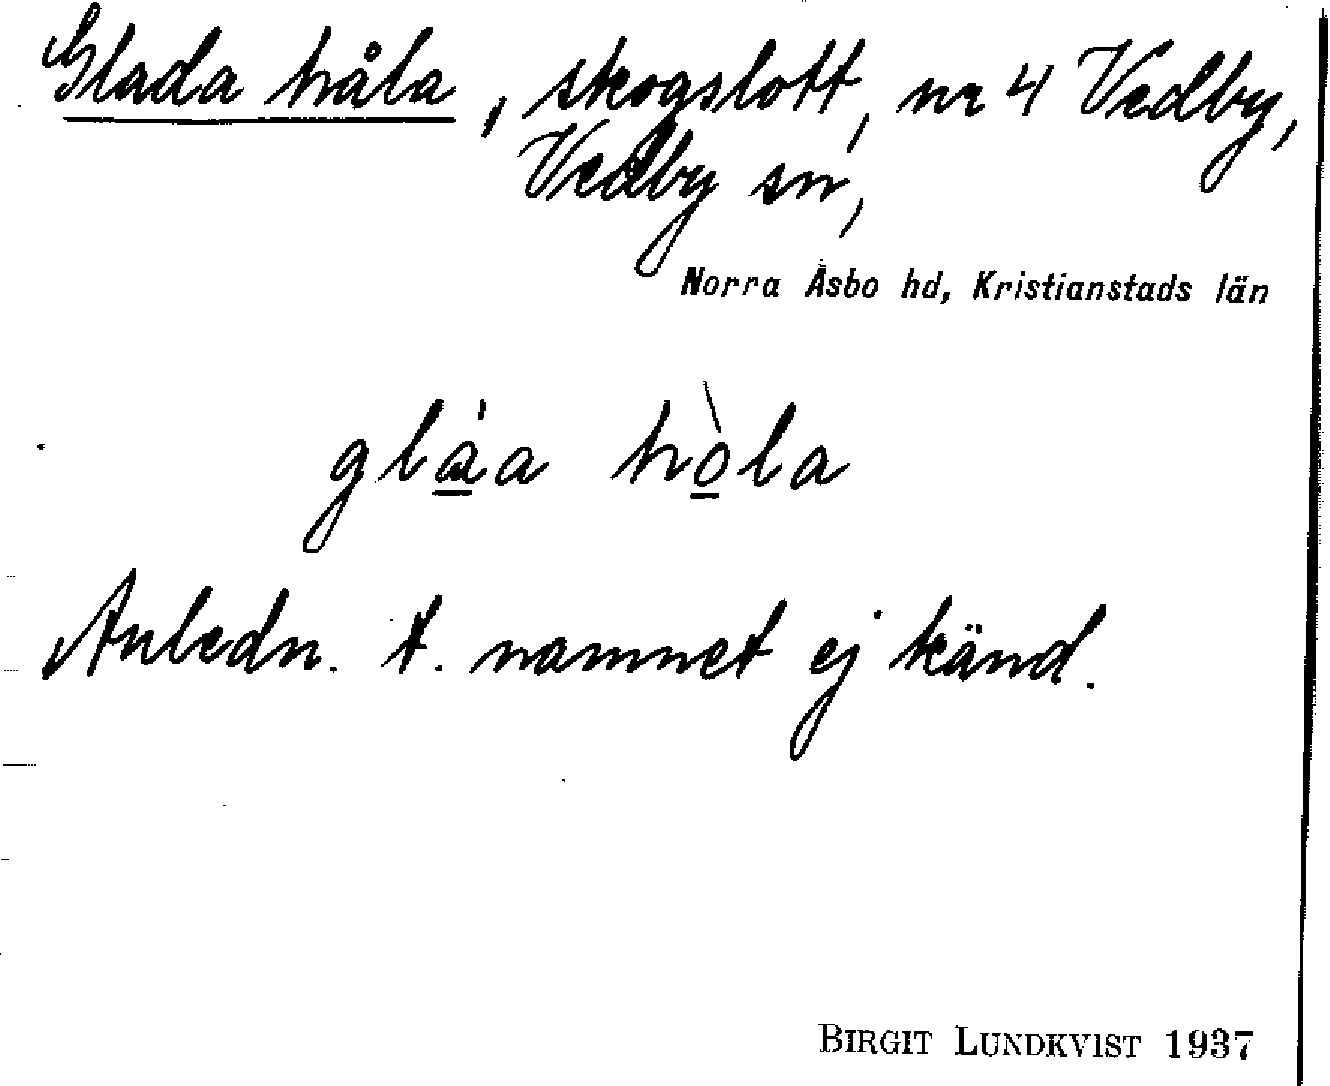 Glada håla, skogslott, nr 4 Vedby,
Vedby sn,
Norra Åsbo hd, Kristianstads län
gla̠̍a hò̠la
Anledn. t. namnet ej känd.
BIRGIT LUNDKVIST 1937